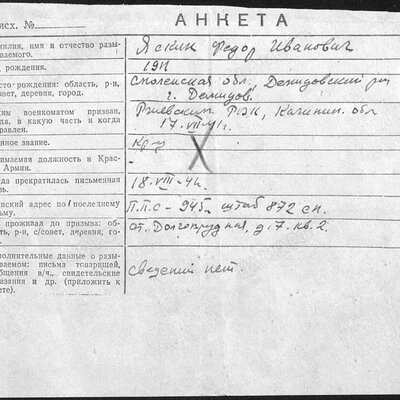 исх. №
АНКЕТА
милия, имя и отчество разы-
ваемого.
Федор Иванович
д рождения.
1911
сто рождения: область, р-н,
овет, деревня, город.
Смоленская обл., Демидовский рн
г. Демидов.
ким военкоматом призван,
да, в какую часть и когда
равлен.
Ржевским РВК, Калинин. обл
17.VII-41г.
нное звание.
Кр-ц
имаемая должность в Крас-
Армии.
-
да прекратилась письменная
вь.
18.VIII-42.
нский адрес по последнему
ьму.
П.П.С-945. штаб 872 сп.
проживал до призыва: об-
ть, р-н, с/совет, деревня, го-
ст. Долгопрудная, д. 7. кв. 2.
олнительные данные о разы-
ваемом: письма товарищей,
общения в/ч., свидетельские
азания и др. (приложить к
ете).
Сведений нет.